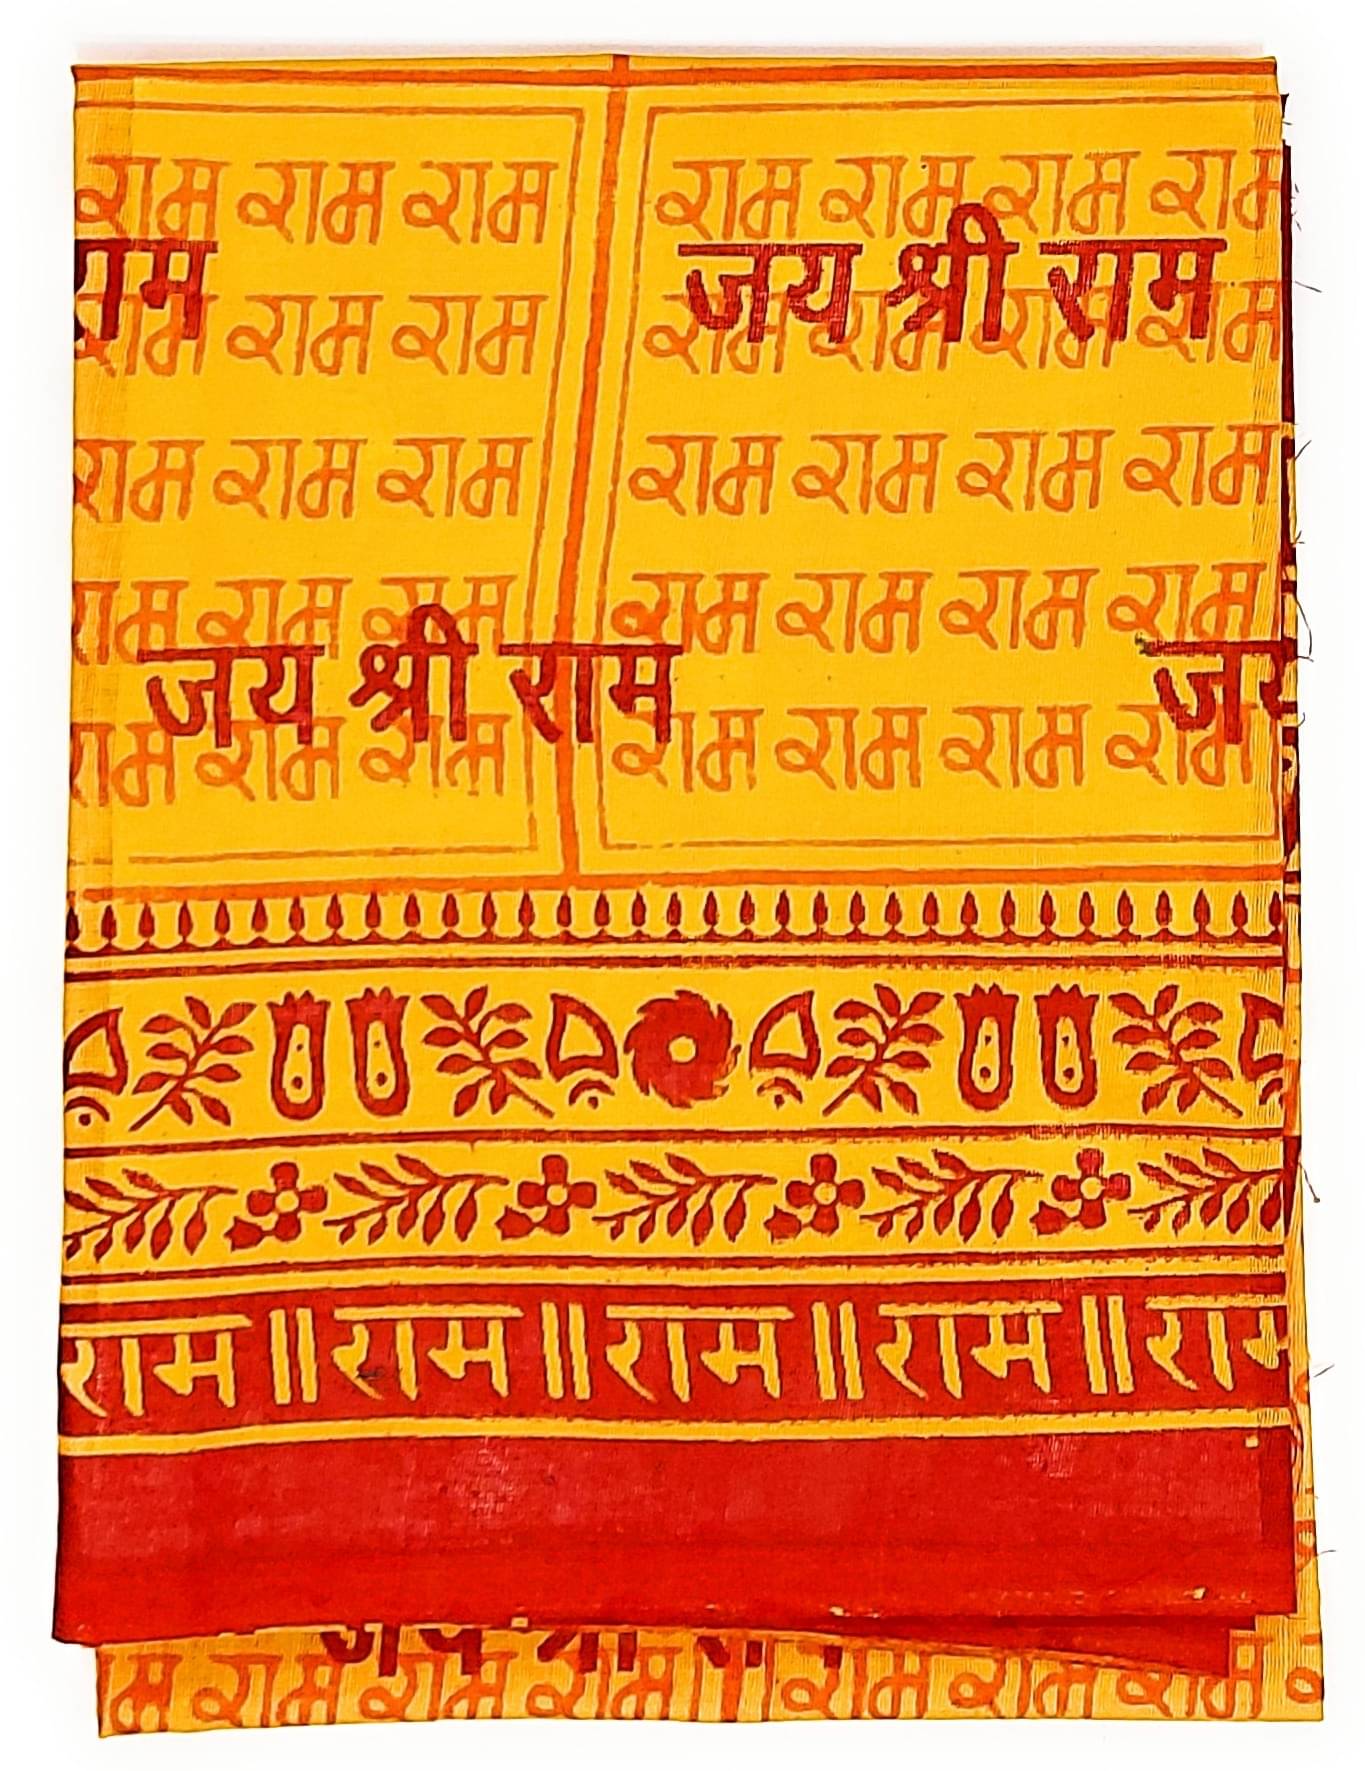 राम राम राम राम राम राम राम
राम जय श्री राम
राम राम राम राम राम राम राम
राम राम राम राम राम राम राम
राम राम राम राम राम राम राम
जय श्री राम जय
राम राम राम राम राम राम राम
राम ॥ राम ॥ राम ॥ राम ॥ राम
जय श्री राम
राम राम राम राम राम राम राम